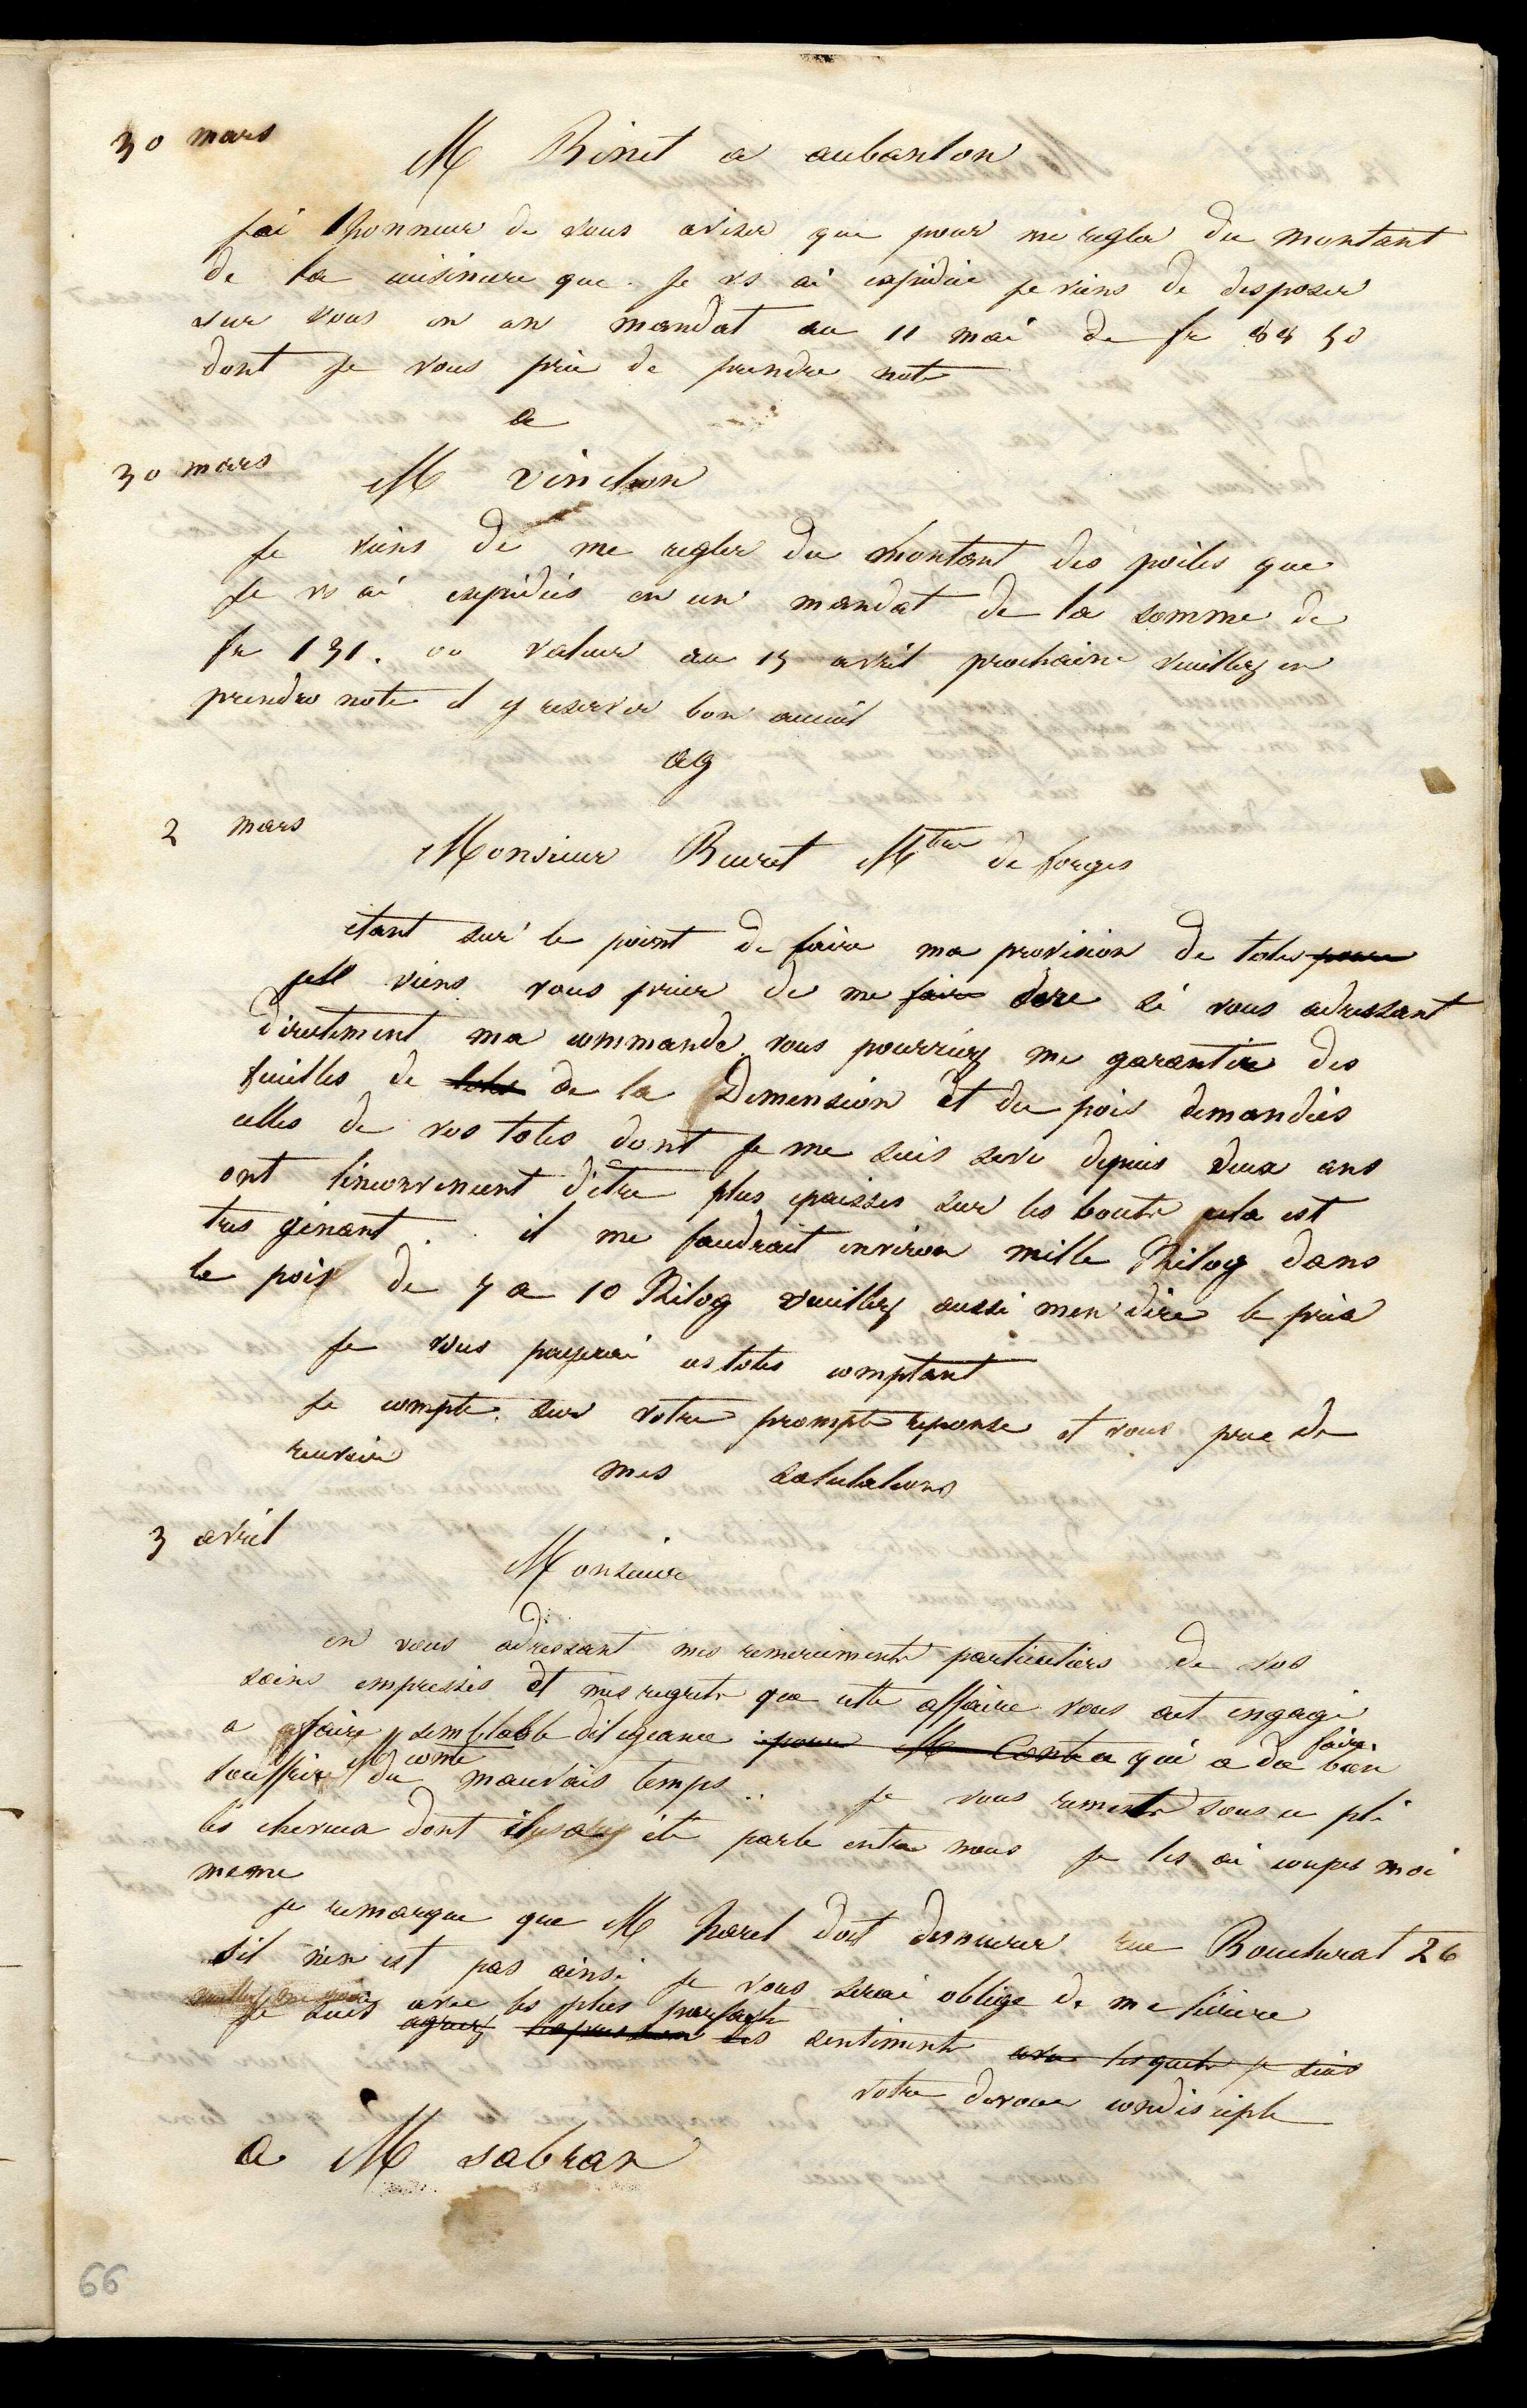 30 mars
M Binet a aubanton
jai lhonneur de vous aviser que pour me regler du montant
de la cuisiniere que je vs ai expediee je viens de desposer
sur vous en un mandat au 11 mai de fr 50
dont je vous prie de prendre note
a
30 mars
M vinchon
Je viens de me regler du montant des poëles que
je vs ai expédiés en un mandat de la somme de
fr 131. 00 valeur au 15 avril prochaine veuillez en
prendre note et y reserver bon acceuil
ag
2 mars
Monsieur Buiret Mtre de forges
étant sur le point de faire ma provision de toles pour
je viens vous prier de me faire dire si vous adressant
directement ma commande vous pourriez me garantir des
feuilles de toles de la Dimension et du pois demandées
celles de vos toles dont je me suis servi depuis deux ans
ont linconvenient d'être plus epaisses sur les bouts cela est
tres génant . . il me faudrait environ mille Kilog dans
le pois de 7 a 10 Kilog veuillez aussi men dire le prix
je vous payerai ces toles comptant
je compte sur votre prompte reponse et vous prie de
recevoir mes salutations
3 avril
Monsieur
en vous adressant mes remerciments particuliers de vos
soins empressés et mes regrets que cette affaire vous ait engagé
a faire semblable diligeance pour M Conte qui a du bien faire
souffrir M conte du mauvais temps .. je vous remets sous ce pli
les cheveux dont été parlé entre nous je les ai coupés moi
meme
je remarque que M harel doit demeurer rue Boucherat 26
sil n'en est pas ainsi je vous serai obligé de me lécrire
veuillez
je suis avec les plus parfaits
agreez lexpression des sentiments avec lesquels je suis
votre devoué condisciple
a M sabran
66